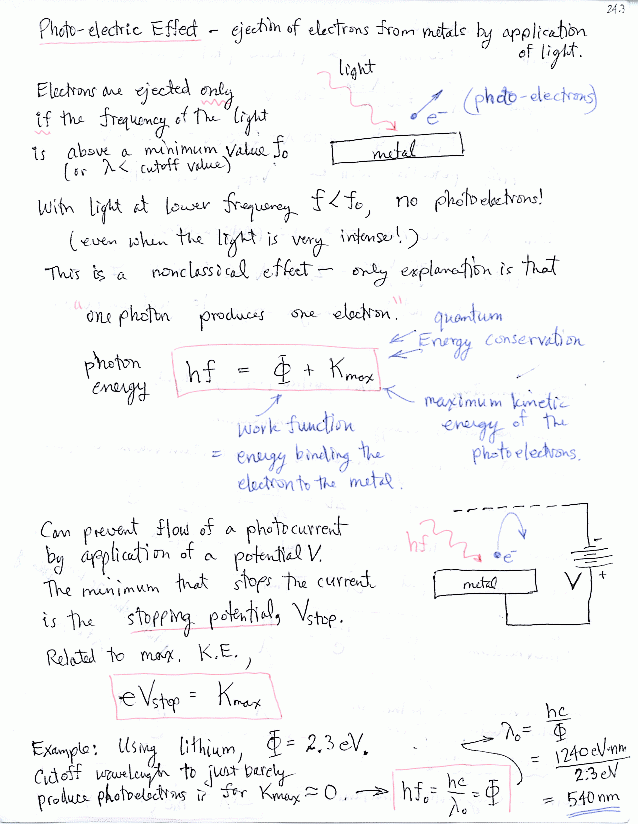 24.3
Photo-electric Effect - ejection of electrons from metals by application
of light.
light
Electrons are ejected only
if the frequency of the light
is above a minimum value f₀
(or λ < cutoff value)
e⁻
(photo-electrons)
metal
With light at lower frequency f < f₀, no photoelectrons!
(even when the light is very intense!)
This is a nonclassical effect — only explanation is that
"one photon produces one electron."
quantum
Energy conservation
photon
energy
hf = Φ + Kmax
work function
= energy binding the
electron to the metal.
maximum kinetic
energy of the
photoelectrons.
Can prevent flow of a photocurrent
by application of a potential V.
The minimum that stops the current
is the stopping potential, Vstop.
Related to max. K.E.,
eVstop = Kmax
hf
e⁻
metal
V
-
+
Example: Using lithium, Φ = 2.3 eV.
Cutoff wavelength to just barely
produce photoelectrons is for Kmax ≈ 0. → hf₀ = hc/λ₀ = Φ
λ₀ = hc/Φ
= 1240 eV·nm/2.3 eV
= 540 nm